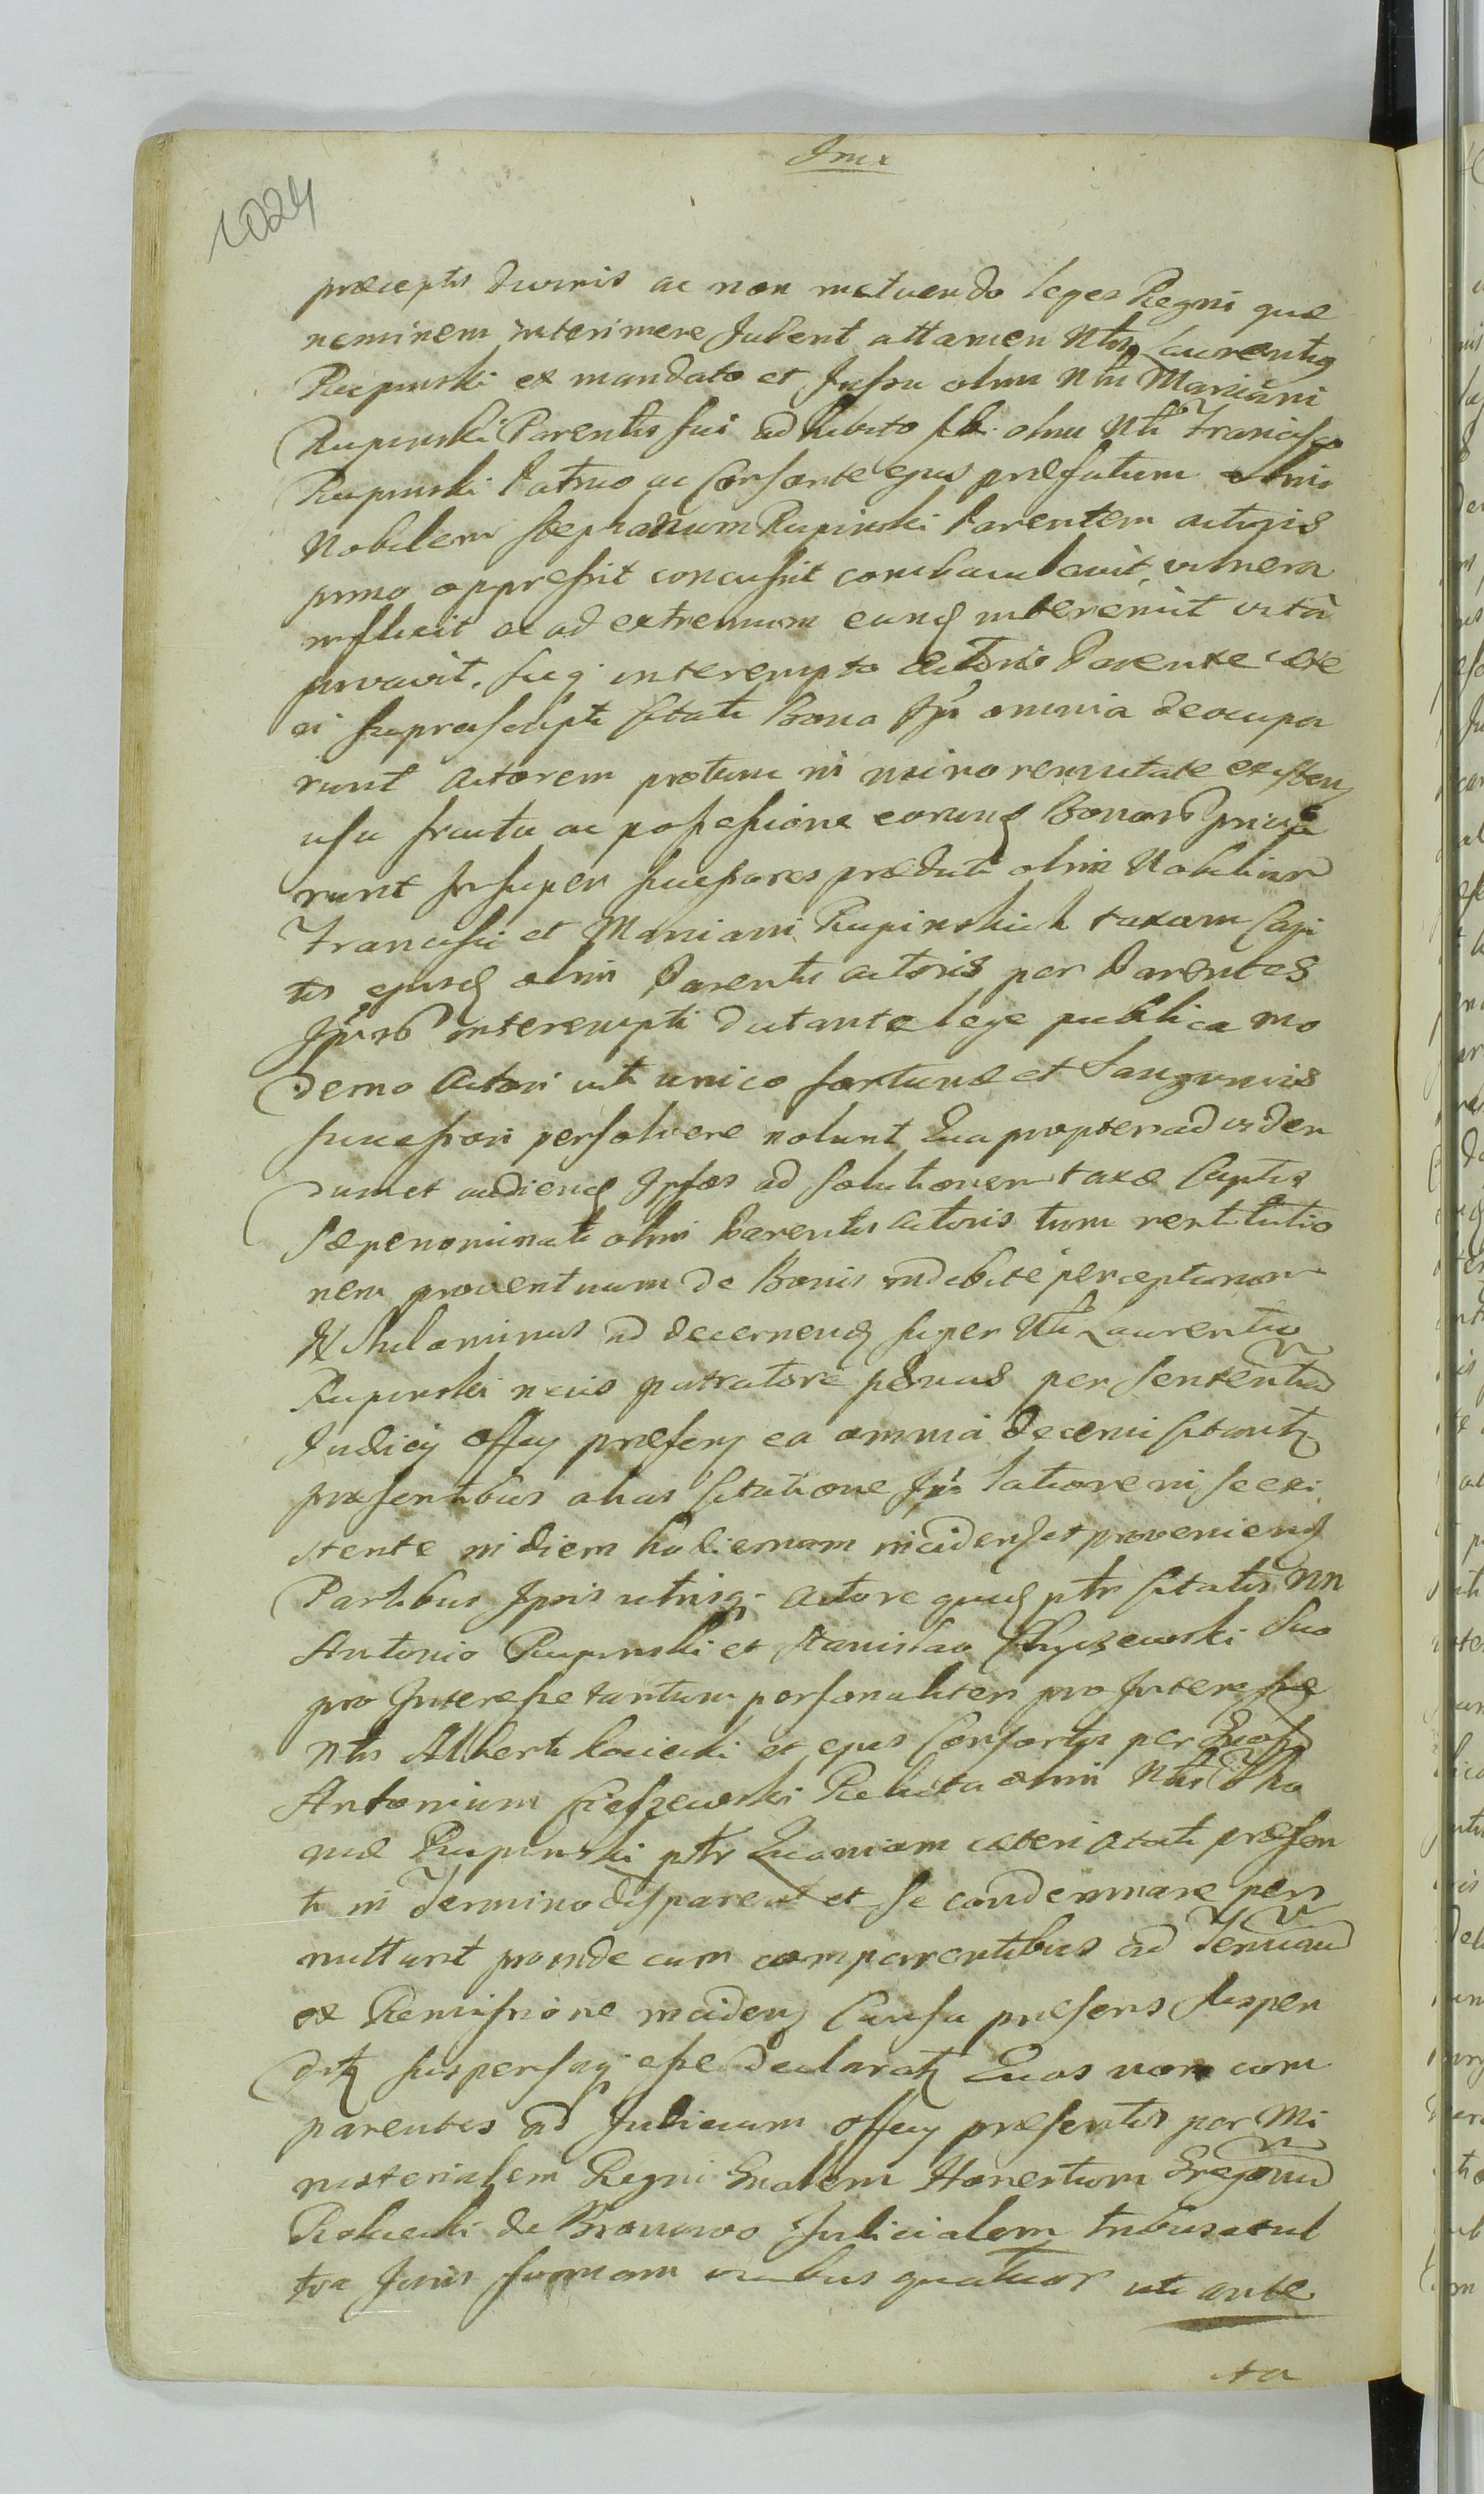 1024
praeceptis Divinis ac non metuendo leges Regni quae
neminem interimere Jubent attamen Nblis Laurentius
Rupinski ex mandato et Jussu olim Nblis Mariani
Rupinski Parentis sui adhibito sibi olim Nbli Francisco
Rupinski Patruo ac Consorte ejus praefatum olim
Nobilem Stephanum Rupinski Parentem actoris
primo oppressit concussit combaculavit, vulnera
inflixit ac ad extremum eundem interemit vitâ
privavit. sicq interempto Actoris Parente caete
ri suprascripti Citati Bona Ipius omnia deoccupa
runt Actorem protunc in minorennitate existen
usu fructu ac possessione eorund Bonorum priva
runt Insuper successores praedicti olim Nobilium
Francisci et Mariani Rupinskich taxam Capi
tis ejusd olim Parentis actoris per Parentes
Ipsorum interempti dictante lege publica mo
derno Actori uti unico fortunae et Sanguinis
successori persolvere nolunt Quapropter ad viden
dum et audiend Ipsos ad solutionem taxae Capitis
Saepenominati olim Parentis actoris tum restitutio
nem proventuum de Bonis indebite perceptorum
ad decernend super Nbli Laurentio
Rupinski necis patratore paenas per Sententiam
Judicij Officij praesens ea omnia decerni citantur
praesentibus alias Citatione Ipius latiore in se exi
stente in diem hodiernam incidens et proveniend
Partibus Ipsis utrisq Actore quid ptr Citatis NN
Antonio Rupinski et Stanislao Chyczewski Suo
pro Interesse tantum personaliter pro Interesse
Nblis Alberti Kosicki et ejus Consortis per Gnosum
Antonium Cieszewski Relicta olim Nblis Tho
mae Rupinski ptr Quoniam caeteri citati praesen
ti in Termino disparent et se condemnare per
mittunt proinde cum comparentibus ad Terminum
ex Remissione inciden Causa praesens suspen
ditur suspensaq esse declaratur Quos non com
parentes ad Judicium Officij praesentis per Mi
nisterialem Regni Gnalem Honestum Gregorium
Rolnicki de Bronowo Judicialem tribus et ul
tra Juris formam vicibus quatuor uti ante
ta